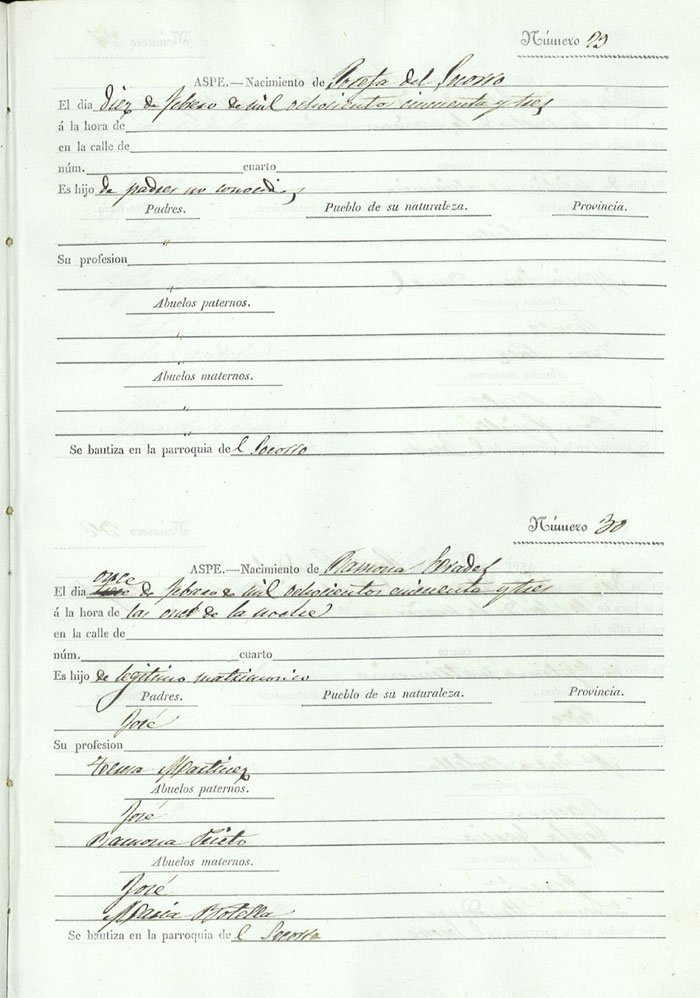 Número 29
ASPE.—Nacimiento de Josefa del Socorro
El dia diez de febrero de mil ochocientos cincuenta y tres
á la hora de
en la calle de
núm. cuarto
Es hijo de padres no conocidos
Padres. Pueblo de su naturaleza. Provincia.
"
Su profesion
"
Abuelos paternos.
"
"
Abuelos maternos.
"
"
Se bautiza en la parroquia de l Socorro
Número 30
ASPE.—Nacimiento de Ramona
once
El dia de febrero de mil ochocientos cincuenta y tres
á la hora de las once de la noche
en la calle de
núm. cuarto
Es hijo de legitimo matrimonio
Padres. Pueblo de su naturaleza. Provincia.
José
Su profesion
Teresa Martinez
Abuelos paternos.
José
Ramona Prieto
Abuelos maternos.
José
Maria Botella
Se bautiza en la parroquia de l Socorro